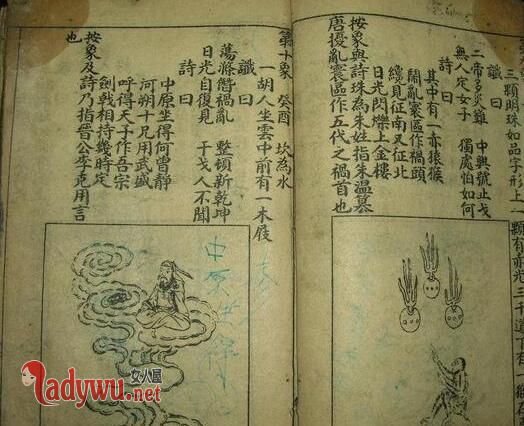 三顆明珠如品字形上一顆有赤光三十道丁有一
讖曰
二帝多災難 中興號止戈
無人定女子 獨處怕如何
詩曰
其中有一赤猿猴
鬧亂寰區作禍頭
纔見征南又征北
日光閃爍上金樓
按象與詩珠為朱姓指朱溫墓
唐擾亂寰區作五代之禍首也
第十象 癸酉 坎為水
一胡人坐雲中前有一木屐
讖曰
蕩滌僭禍亂 整頓新乾坤
日光自復見 干戈人不聞
詩曰
中原坐得何曾靜
河朔十兄用武盛
呼得天子作吾宗
劍戟相持幾時定
按象及詩乃指晉公李克用言
也
中原坐得
女人屋
ladywu.net